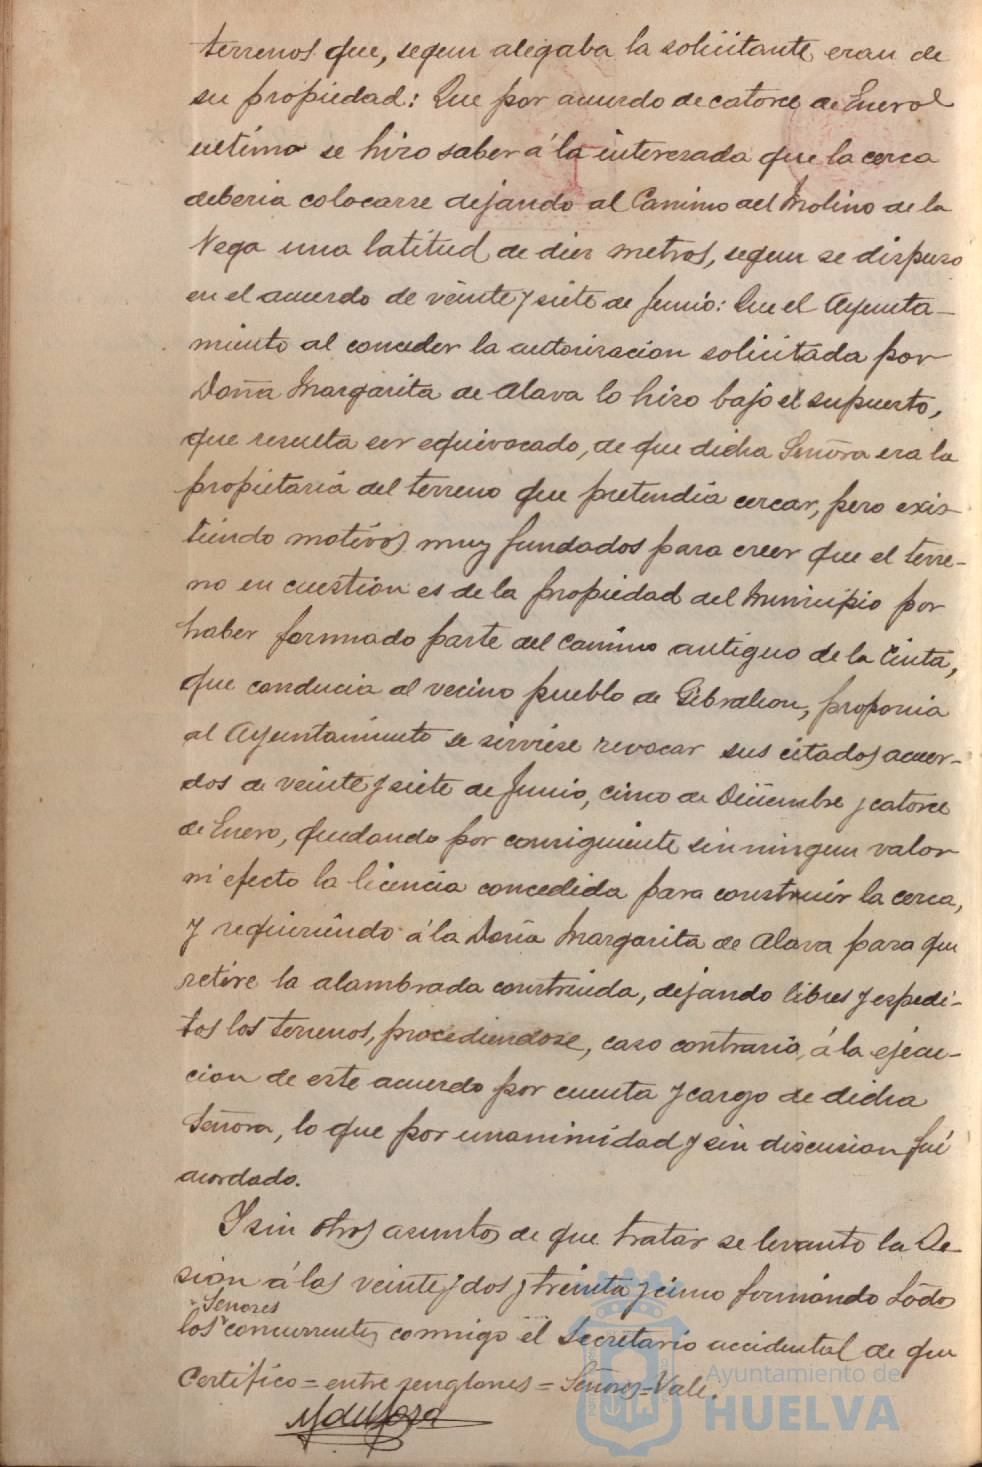 terrenos que, segun alegaba la solicitante, eran de
su propiedad: Que por acuerdo de catorce de Enero
ultimo se hizo saber á la interesada que la cerca
deberia colocarse dejando al Camino del Molino de la
Vega una latitud de diez metros, segun se dispuso
en el acuerdo de veinte y siete de Junio: Que el Ayunta-
miento al conceder la autorizacion solicitada por
Doña Margarita de Alava lo hizo bajo el supuesto,
que resulta ser equivocado, de que dicha Señora era la
propietaria del terreno que pretendia cercar, pero exis-
tiendo motivos muy fundados para creer que el terre-
no en cuestion es de la propiedad del Municipio por
haber formado parte del Camino antiguo de la Cinta,
que conducia al vecino pueblo de Gibraleon, proponia
al Ayuntamiento se sirviese revocar sus citados acuer-
dos de veinte y siete de Junio, cinco de Diciembre y catorce
de Enero, quedando por consiguiente sin ningun valor
ni efecto la licencia concedida para construir la cerca,
y requiriendo á la Doña Margarita de Alava para que
retire la alambrada construida, dejando libres y espedi-
tos los terrenos, procediendose, caso contrario, á la ejecu-
cion de este acuerdo por cuenta y cargo de dicha
Señora, lo que por unanimidad y sin discusion fué
acordado.
Y sin otros asuntos de que tratar se levanto la Se-
sion á las veinte y dos y treinta y cinco firmando todos
Señores
los concurrentes conmigo el Secretario accidental de que
Certifico = entre renglones = Señores = Vale.
Ayuntamiento de
HUELVA